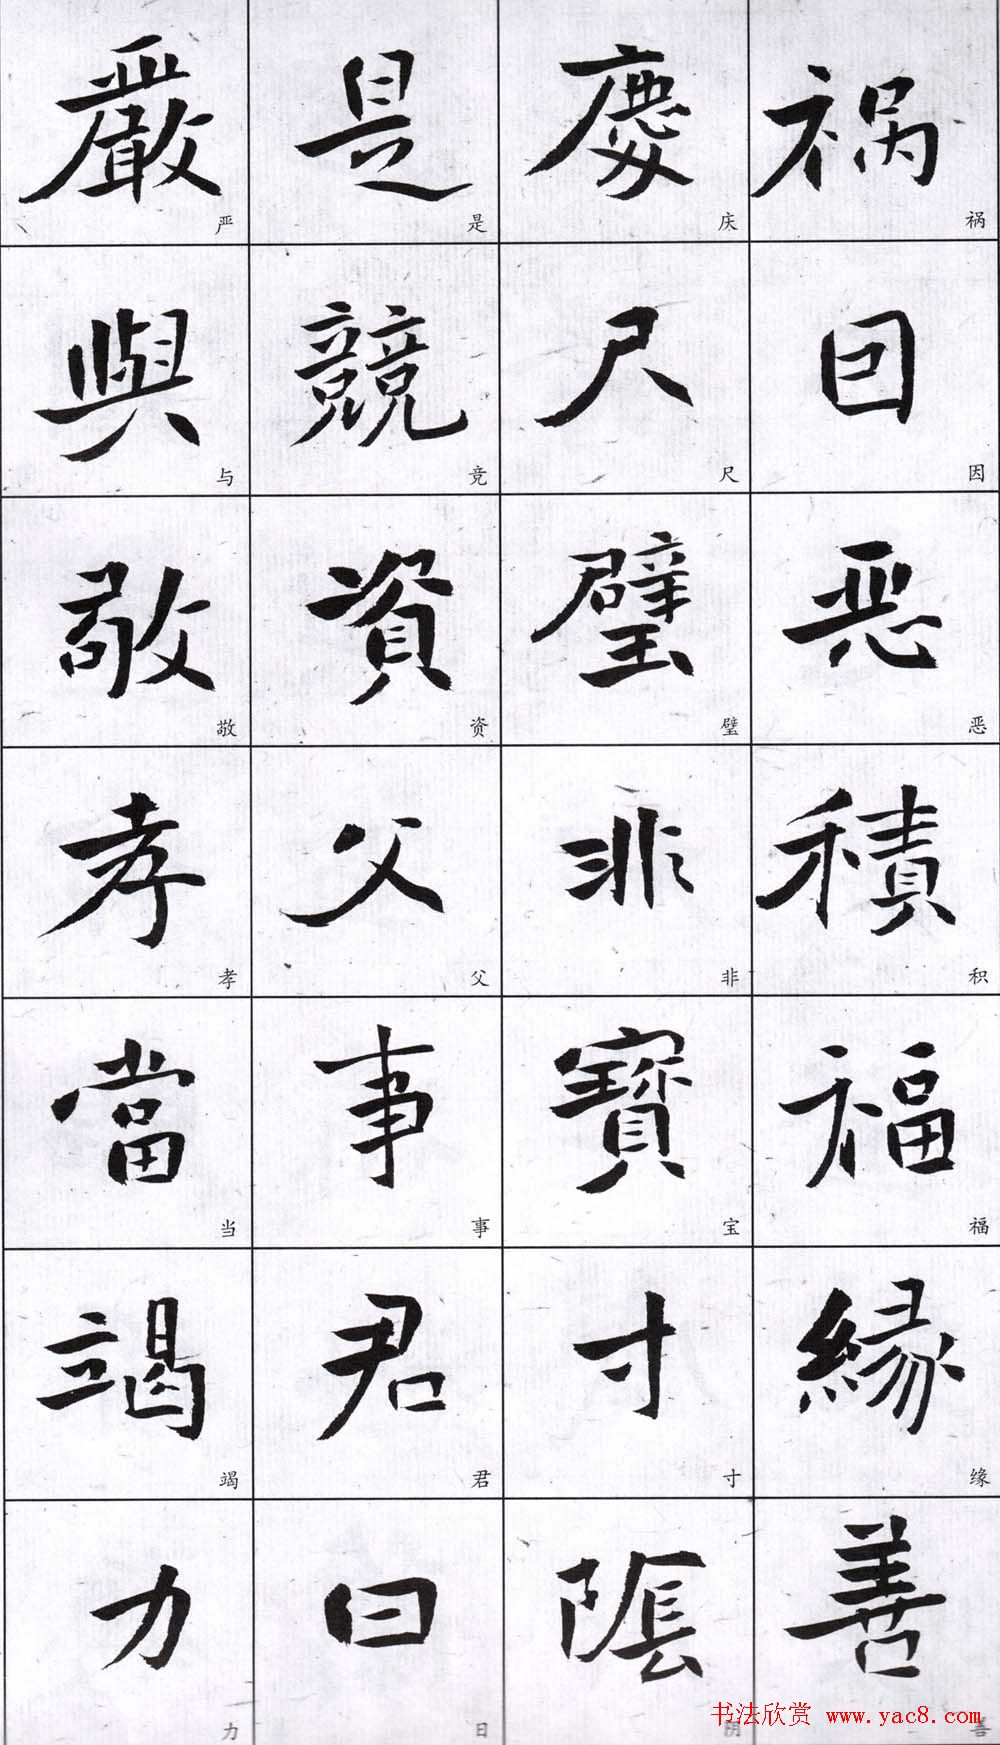 祸因恶積福緣善
祸因恶积福缘善
慶尺璧非寶寸陰
庆尺璧非宝寸阴
是競資父事君曰
是竞资父事君日
嚴與敬孝當竭力
严与敬孝当竭力
书法欣赏 www.yac8.com